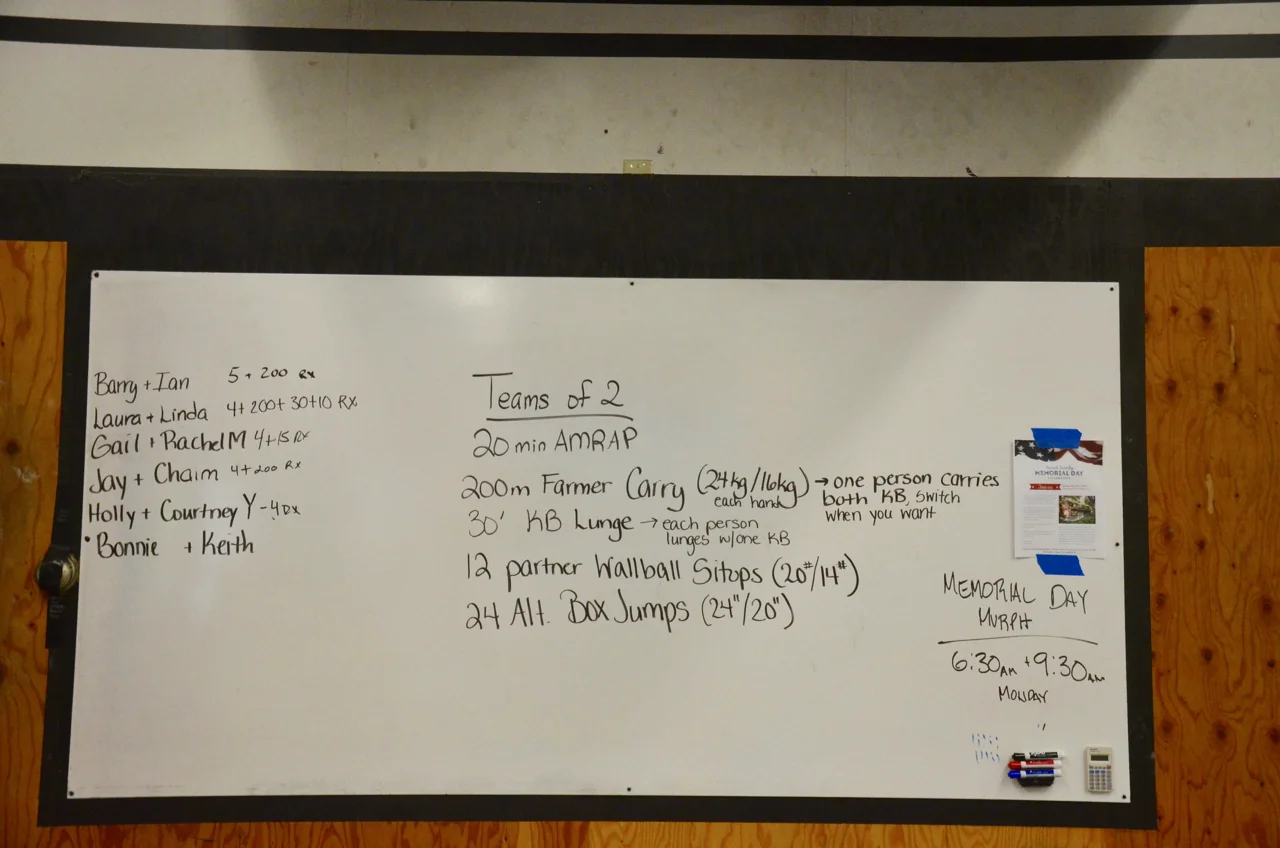 Barry + Ian 5 + 200 RX
Laura + Linda 4+200+30+10 RX
Gail + Rachel M 4+15 RX
Jay + Chaim 4+200 RX
Holly + Courtney Y - 4 RX
Bonnie + Keith
Teams of 2
20 min AMRAP
200m Farmer Carry (24kg/16kg) → one person carries
each hand
both KB, switch
when you want
30' KB Lunge → each person
lunges w/one KB
12 partner Wallball Situps (20#/14#)
24 Alt. Box Jumps (24"/20")
MEMORIAL DAY
MEMORIAL DAY
MURPH
6:30AM + 9:30AM
MONDAY